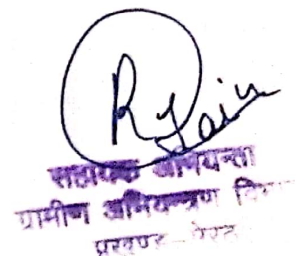 R Jain
सहायक अभियन्ता
ग्रामीण अभियन्त्रण
प्रखण्ड -